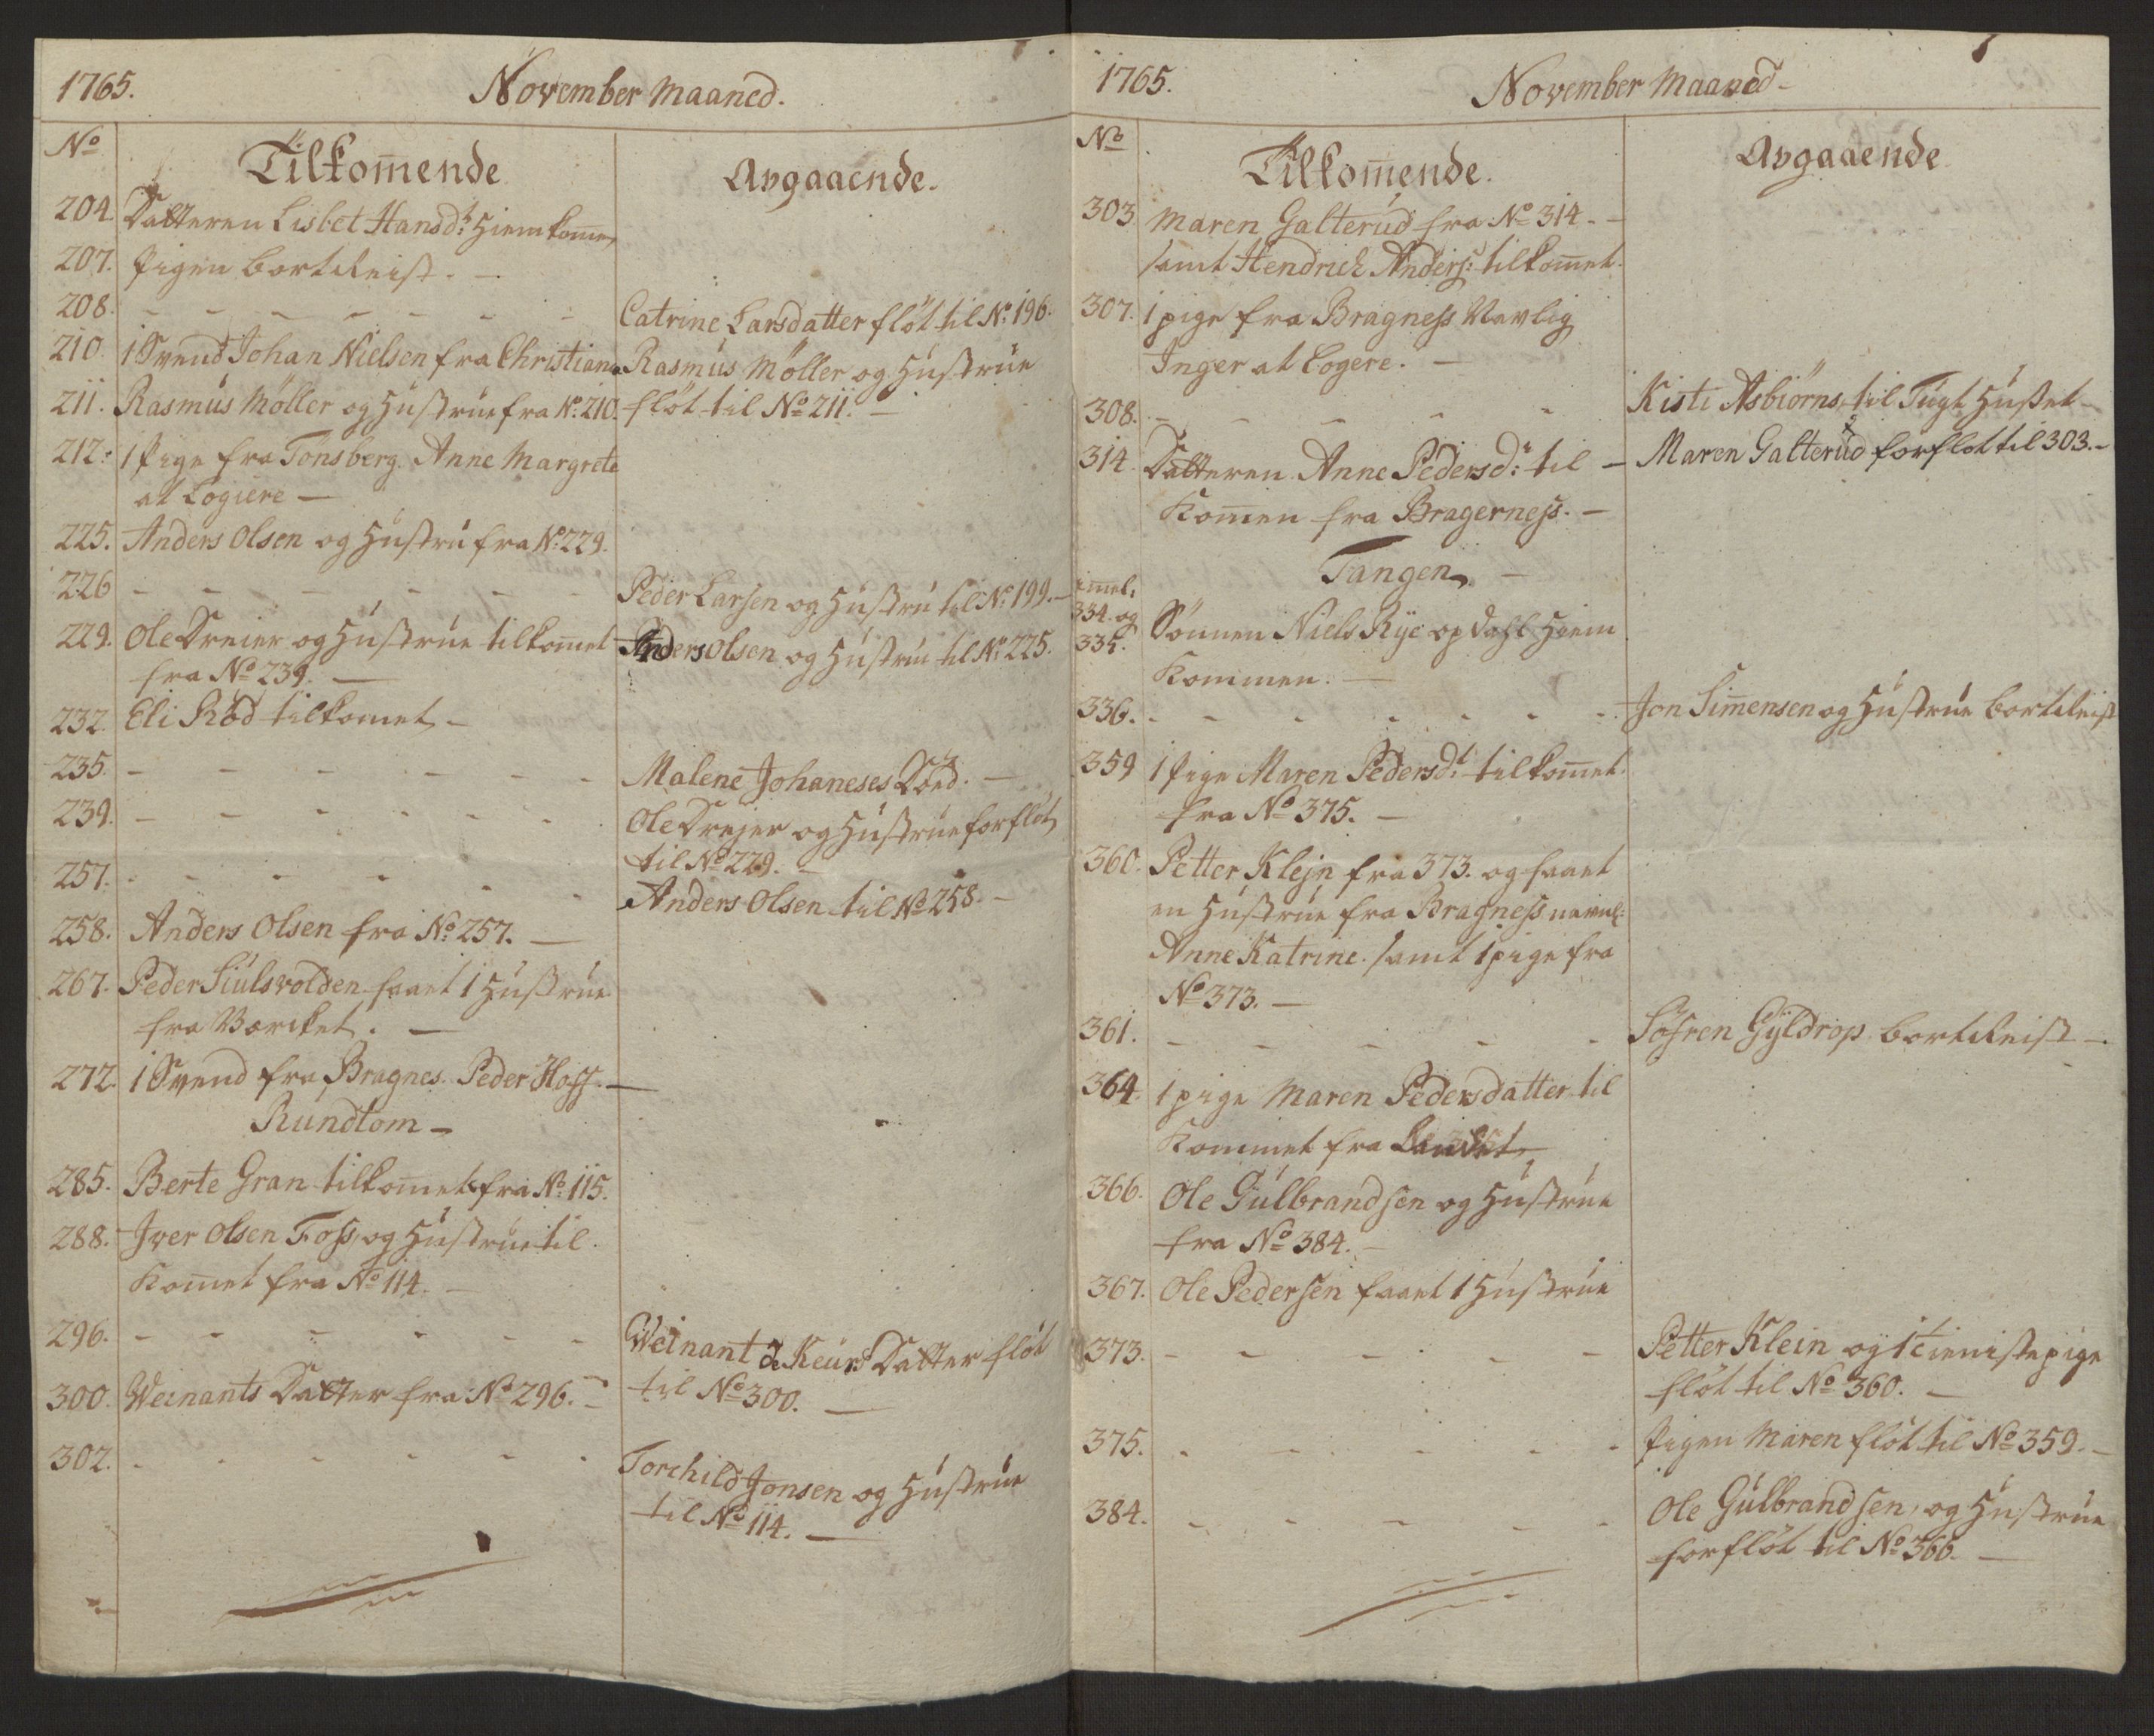 1765.
November Maaned.
No
Tilkom̄ende
Avgaaende.
204. Datteren Lisbet Hansd: Hiemkom̄en
207. Pigen bortreist. -
208. - - - - - - Catrine Larsdatter flöt til No: 196.
210. 1 Svend Johan Nielsen fra Christiana Rasmus Möller og Hustrue
211. Rasmus Möller og Hustrue fra No: 210. flöt til No 211. -
212: 1 Pige fra Tönsberg Anne Margrete
at Logiere -
225. Anders Olsen og Hustru fra No: 229.
226 - - - - - - Peder Larsen og Hustru til No: 199. -
229. Ole Dreier og Hustrue tilkom̄et Anders Olsen og Hustrue til No: 225.
fra No 239. -
232. Eli Röd tilkomet -
235. - - - - - - Malene Johaneses Död. -
239. - - - - - - Ole Drejer og Hustrue forflöt
til No 229. -
257. - - - - - - Anders Olsen til No 258. -
258. Anders Olsen fra No: 257. -
267. Peder Siulsvolden faaet 1 Hustrue
fra Værcket. -
272. 1 Svend fra Bragnes. Peder Hoff. -
Rundtom -
285. Berte Gran tilkom̄et fra No: 115.
288. Iver Olsen Foss, og Hustrue til
Kom̄et fra No 114. -
296. - - - - - - Weinant de Keurs Datter flöt
til No 300. -
300. Weinants Datter fra No 296. -
302. - - - - - - Torchild Jonsen og Hustrue
til No 114. -
1765.
November Maaned -
No
Tilkom̄ende.
Avgaaende
303. Maren Galterud fra No 314. -
samt Hendrich Anders: tilkom̄et.
307. 1 pige fra Bragness Navlig
Inger at Logere. -
308. - - - - - Kisti Asbiörns. til Tugt Huset -
314. Datteren Anne Pedersd: til - Maren Galterud forflöt til 303. -
Kom̄en fra Bragerness. -
Tangen, -
im̄el:
334. og
335. Sönnen Niels Rye opdahl Hiem
Kommen. -
336. - - - - - - - Jon Sim̄ensen og Hustrue bortreist
359 1 Pige Maren Pedersdt: tilkom̄et.
fra No 375. -
360. Petter Klejn fra 373. og faaet
en Hustrue fra Bragness navnl:
Anne Katrine. samt 1 pige fra
No 373. -
361. - - - - - Söfren Gyldrop bortreist -
364. 1 pige Maren Pedersdatter til
Kommet fra Landet -
366. Ole Gulbrandsen og Hustrue
fra No 384. -
367. Ole Pedersen faaet 1 Hustrue
373. - - - - - - Petter Klein og 1 tieniste pige
flöt til No 360. -
375. - - - - - Pigen Maren flöt til No 359. -
384. - - - - - Ole Gulbrandsen, og Hustrue
forflöt til No 366. -